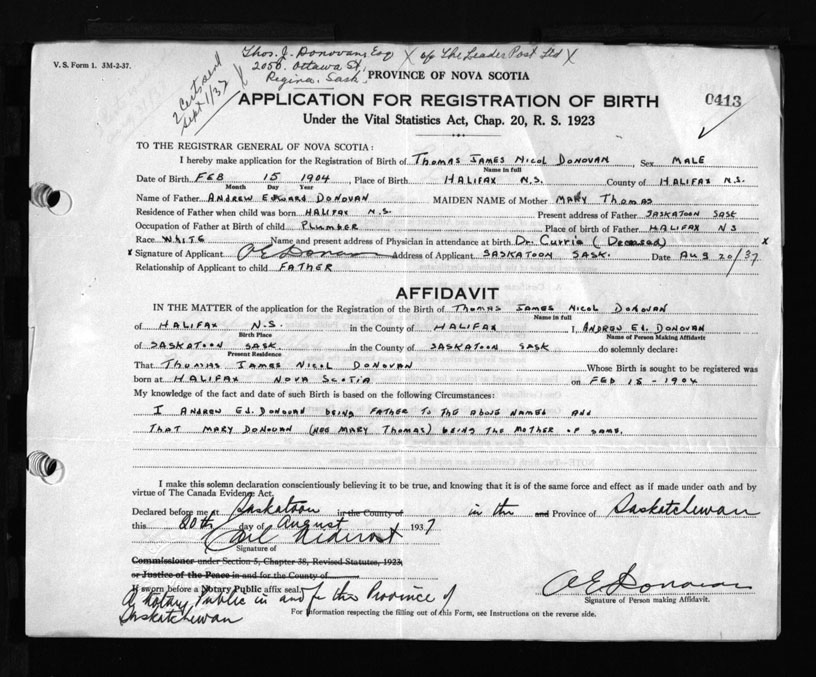 Thos. J. Donovan Esq X c/o The Leader Post Ltd X
V. S. Form 1. 3M-2-37.
2056 Ottawa St.
Regina. Sask. PROVINCE OF NOVA SCOTIA
2 Certs sent
Sept 1/37
APPLICATION FOR REGISTRATION OF BIRTH 0413
Under the Vital Statistics Act, Chap. 20, R. S. 1923
TO THE REGISTRAR GENERAL OF NOVA SCOTIA:
I hereby make application for the Registration of Birth of THOMAS JAMES NICOL DONOVAN, Sex MALE
Name in full
Date of Birth FEB 15 1904, Place of Birth HALIFAX N.S. County of HALIFAX N.S.
Month Day Year
Name of Father ANDREW EDWARD DONOVAN MAIDEN NAME of Mother MARY THOMAS
Residence of Father when child was born HALIFAX N.S. Present address of Father SASKATOON SASK
Occupation of Father at Birth of child PLUMBER Place of birth of Father HALIFAX NS
Race WHITE Name and present address of Physician in attendance at birth Dr. Currie (Deceased) X
X Signature of Applicant A E Donovan Address of Applicant SASKATOON SASK. Date AUG 20/37
Relationship of Applicant to child FATHER
AFFIDAVIT
IN THE MATTER of the application for the Registration of the Birth of THOMAS JAMES NICOL DONOVAN
Name in full
of HALIFAX N.S. in the County of HALIFAX I, ANDREW ED. DONOVAN
Birth Place Name of Person Making Affidavit
of SASKATOON SASK. in the County of SASKATOON SASK do solemnly declare:
Present Residence
That THOMAS JAMES NICOL DONOVAN Whose Birth is sought to be registered was
born at HALIFAX NOVA SCOTIA on FEB 15 - 1904
My knowledge of the fact and date of such Birth is based on the following Circumstances:
I ANDREW ED. DONOVAN BEING FATHER TO THE ABOVE NAMED AND
THAT MARY DONOVAN (NEE MARY THOMAS) BEING THE MOTHER OF SAME.
I make this solemn declaration conscientiously believing it to be true, and knowing that it is of the same force and effect as if made under oath and by
virtue of The Canada Evidence Act.
Declared before me at Saskatoon in the County of in the and Province of Saskatchewan
this 20th day of August 1937
Signature of
Commissioner under Section 5, Chapter 38, Revised Statutes, 1923,
or Justice of the Peace in and for the County of
If sworn before a Notary Public affix seal. A E Donovan
A Notary Public in and for the Province of
Signature of Person making Affidavit.
Saskatchewan
For Information respecting the filling out of this Form, see Instructions on the reverse side.